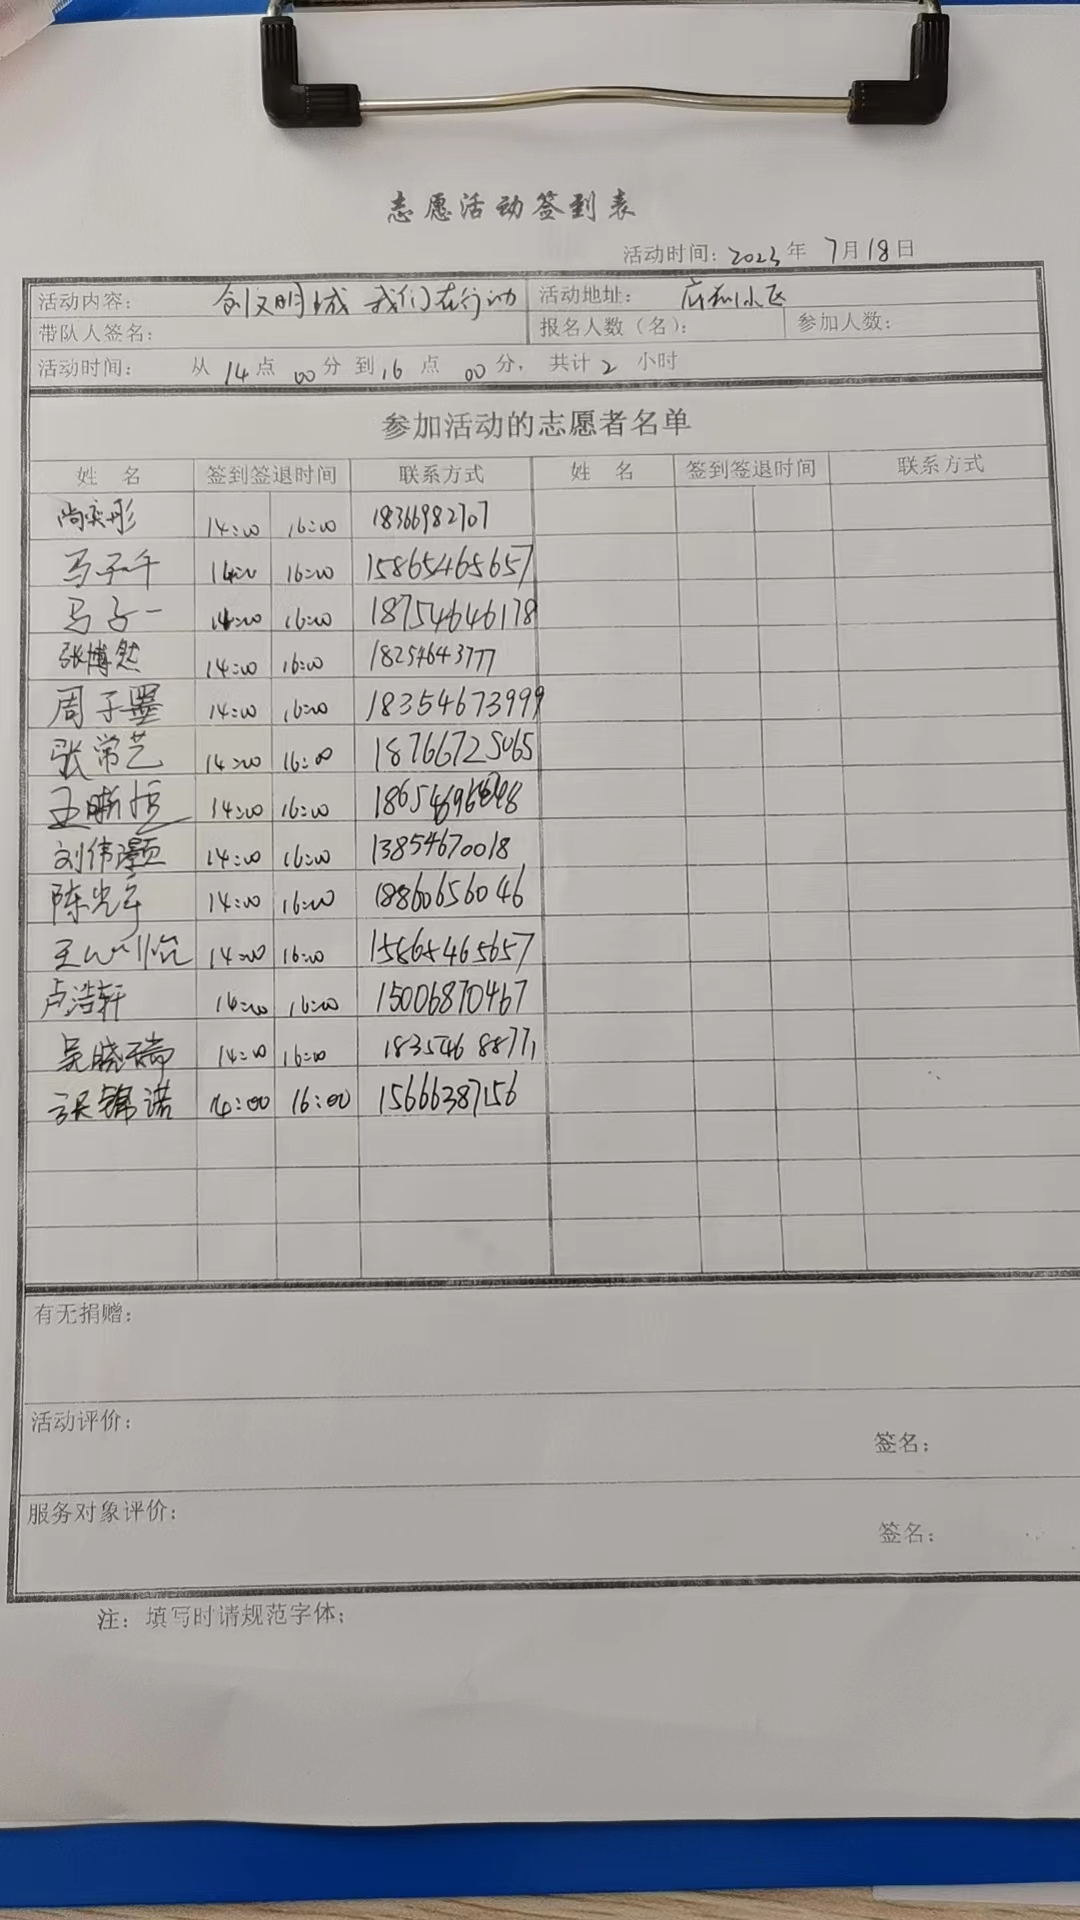 志愿活动签到表
活动时间：2023年 7月18日
活动内容： 创文明城 我们在行动 活动地址： 小区
带队人签名： 报名人数（名）： 参加人数：
活动时间： 从 14点 00分到16点 00分， 共计2小时
参加活动的志愿者名单
姓 名 签到签退时间 联系方式 姓 名 签到签退时间 联系方式
尚奕彤 14:00 16:00 18366982707
马子千 14:00 16:00 15865465657
马子一 14:00 16:00 18754646178
张博然 14:00 16:00 18254643777
周子墨 14:00 16:00 18354673999
张常艺 14:00 16:00 18766725065
14:00 16:00
刘伟灏 14:00 16:00 13854670018
陈光宇 14:00 16:00 18860656046
14:00 16:00 15865465657
卢浩轩 14:00 16:00 15006870467
吴晓瑞 14:00 16:00 18354688771
张锦诺 14:00 16:00 15666387156
有无捐赠：
活动评价：
签名：
服务对象评价：
签名：
注：填写时请规范字体；